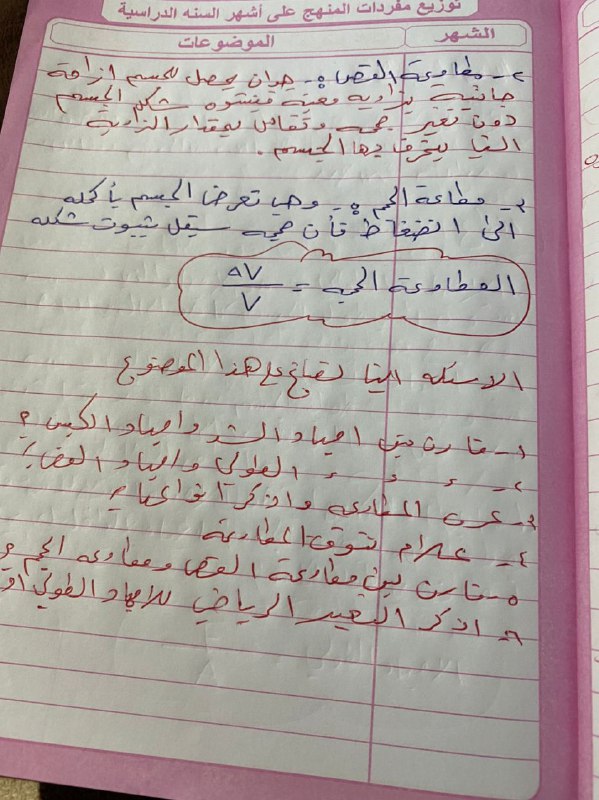 توزيع مفردات المنهج على أشهر السنه الدراسية
الشهر
الموضوعات
٢- مطاوعة القص :- حيث يحصل للجسم ازاحة
جانبية بزاوية معينة فتتشوه شكل الجسم
دون تغير حجمه وتقاس بمقدار الزاوية
التي ينحرف بها الجسم.
٣- مطاعة الحجم :- وهي تعرض الجسم بأكمله
الى انضغاط فأن حجمه سيقل بثبوت شكله
المطاوعة الحجمية = ΔV / V
الاسئله التي تصاغ على هذا الموضوع
١- قارن بين اجهاد الشد واجهاد الكبس ؟
٢- ء ء الطولي واجهاد القص ؟
٣- عرف المطاوعه واذكر انواعها ؟
٤- علام تتوقف المطاوعة
٥- قارن بين مطاوعة القص ومطاوعه الحجم ؟
٦- اذكر التعبير الرياضي للاجهاد الطولي او